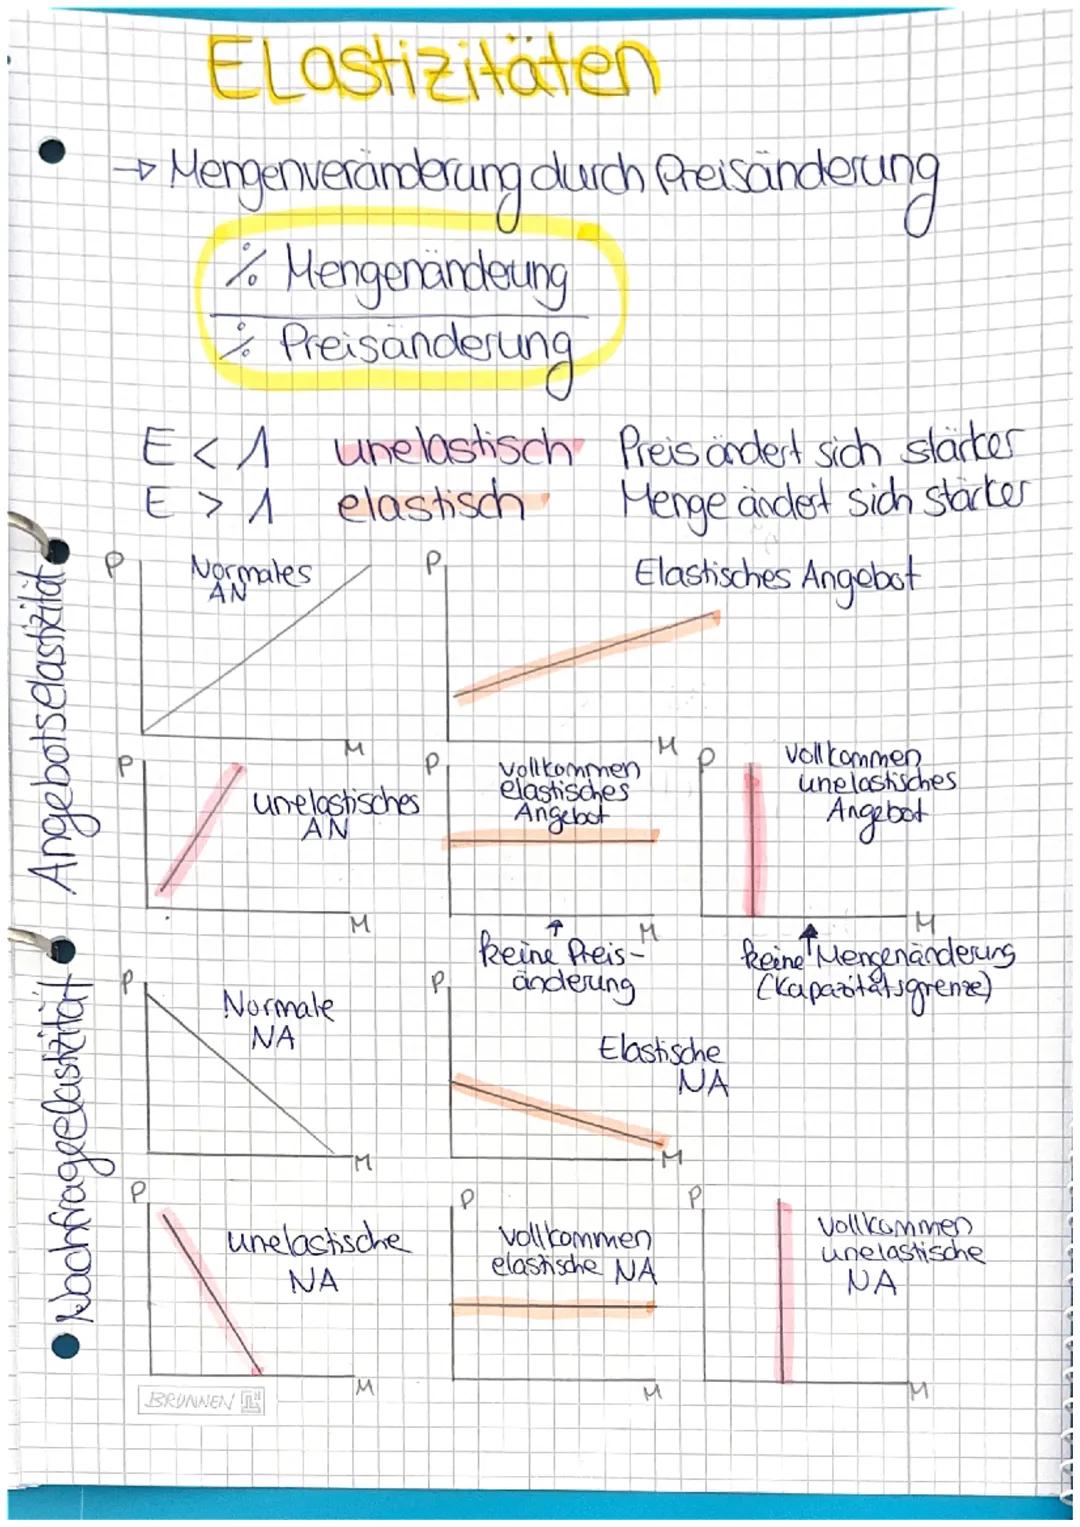 Elastizitäten
→ Mengenveränderung durch Preisänderung
% Mengenänderung
% Preisänderung
E < 1 unelastisch Preis ändert sich stärker
E > 1 elastisch Menge ändert sich stärker
Angebotselastizität
P
Normales
AN
M
P
Elastisches Angebot
M
P
unelastisches
AN
M
P
vollkommen
elastisches
Angebot
M
keine Preis-
änderung
P
Vollkommen
unelastisches
Angebot
M
keine Mengenänderung
(Kapazitätsgrenze)
Nachfrageelastizität
P
Normale
NA
M
P
Elastische
NA
M
P
unelastische
NA
M
P
Vollkommen
elastische NA
M
P
Vollkommen
unelastische
NA
M
BRUNNEN